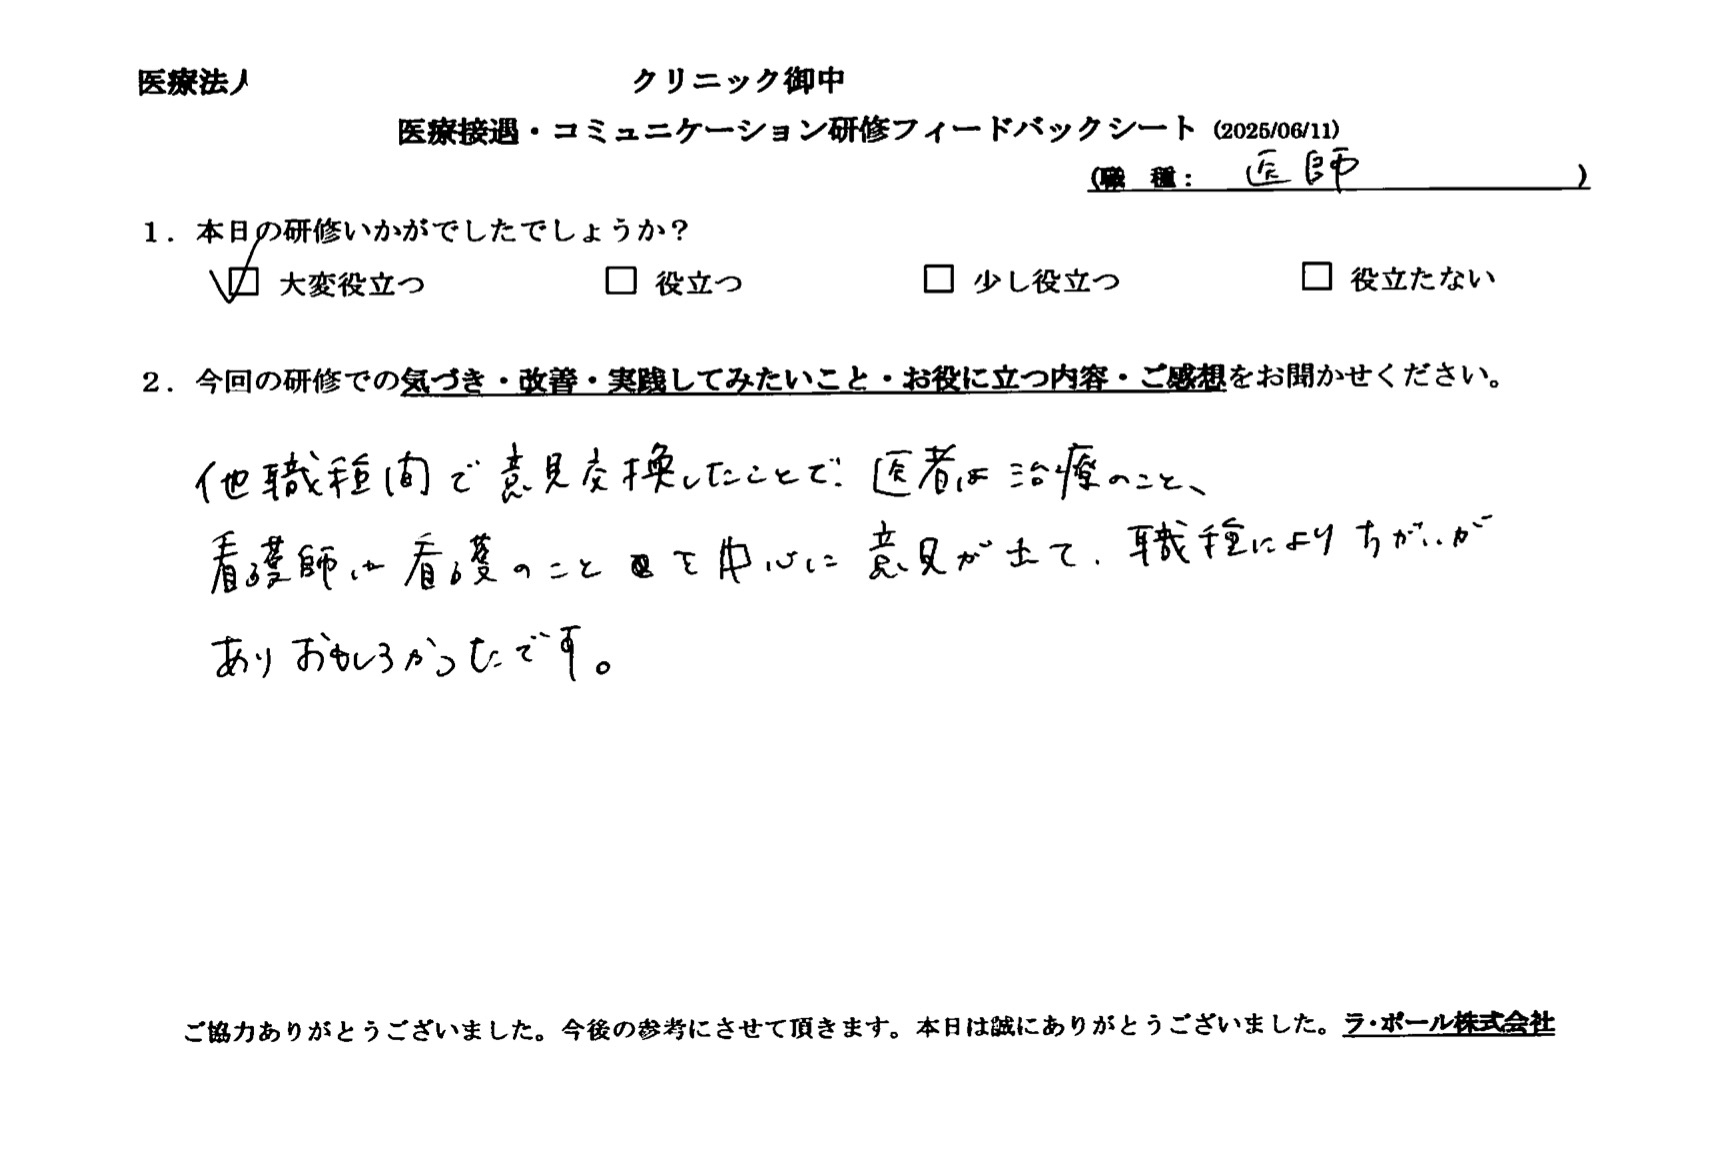 医療法人 クリニック御中
医療接遇・コミュニケーション研修フィードバックシート (2025/06/11)
(職 種: 医師 )
1．本日の研修いかがでしたでしょうか？
☑ 大変役立つ □ 役立つ □ 少し役立つ □ 役立たない
2．今回の研修での気づき・改善・実践してみたいこと・お役に立つ内容・ご感想をお聞かせください。
他職種間で意見交換したことで、医者は治療のこと、
看護師は看護のことを中心に意見が出て、職種によりちがいが
ありおもしろかったです。
ご協力ありがとうございました。今後の参考にさせて頂きます。本日は誠にありがとうございました。ラ・ポール株式会社